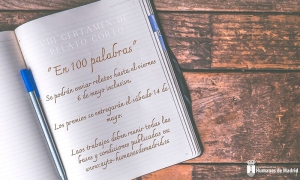 VIII CERTAMEN DE
RELATO CORTO
"En 100 palabras"
Se podrán enviar relatos hasta el viernes
6 de mayo inclusive.
Los premios se entregarán el sábado 14 de
mayo.
Los trabajos deben reunir todas las
bases y condiciones publicadas en:
www.ayto-humanesdemadrid.es
Humanes de Madrid